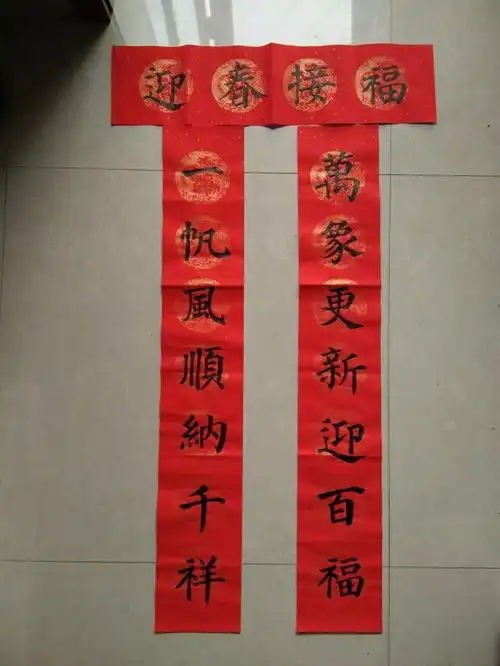 迎春接福
一帆風順納千祥
萬象更新迎百福